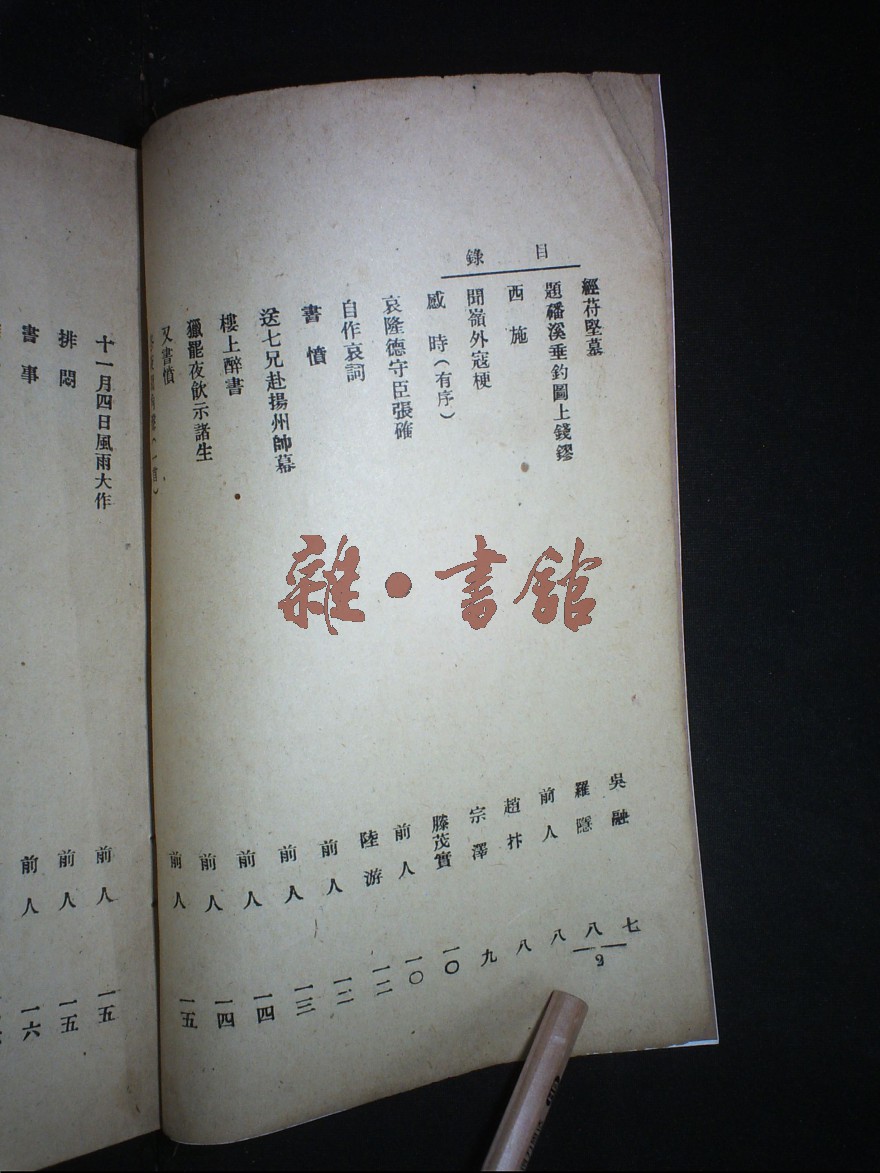 目錄
經苻堅墓 吳融 七
題磻溪垂釣圖上錢鏐 羅隱 八
西施 前人 八
聞嶺外寇梗 趙抃 八
感時(有序) 宗澤 九
哀隆德守臣張確 滕茂實 一〇
自作哀詞 前人 一〇
書憤 陸游 一二
送七兄赴揚州帥幕 前人 一二
樓上醉書 前人 一三
獵罷夜飲示諸生 前人 一四
又書憤 前人 一四
前人 一五
2
十一月四日風雨大作 前人 一五
排悶 前人 一五
書事 前人 一六
雜·書館